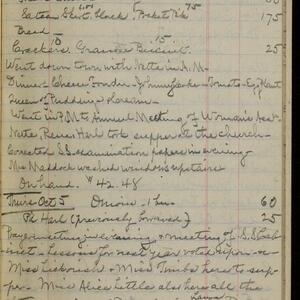 175
Bread -
10 15
Crackers, Graham Biscuit. 25
Went down town with Nette in A.M.
Dinner - Cheese Fondu - Johnny Cake - Tomato - Egg Plant
Queen of Puddings & Cream -
Went in P.M. to Annual Meeting of Woman's
Nette Rena Harl took supper at the Church -
Corrected S.S. examination papers in evening -
Mrs Maddock washed windows upstairs
On hand. $42.48
Thurs Oct 5 Onions - 60
Pd Harl (previously borrowed) 25
Prayer meeting in evening & meeting of S.S. Cab-
inet - Lessons for next year voted upon - &
Miss & Miss Timbs here to sup-
per. Miss Alice Little also here all the